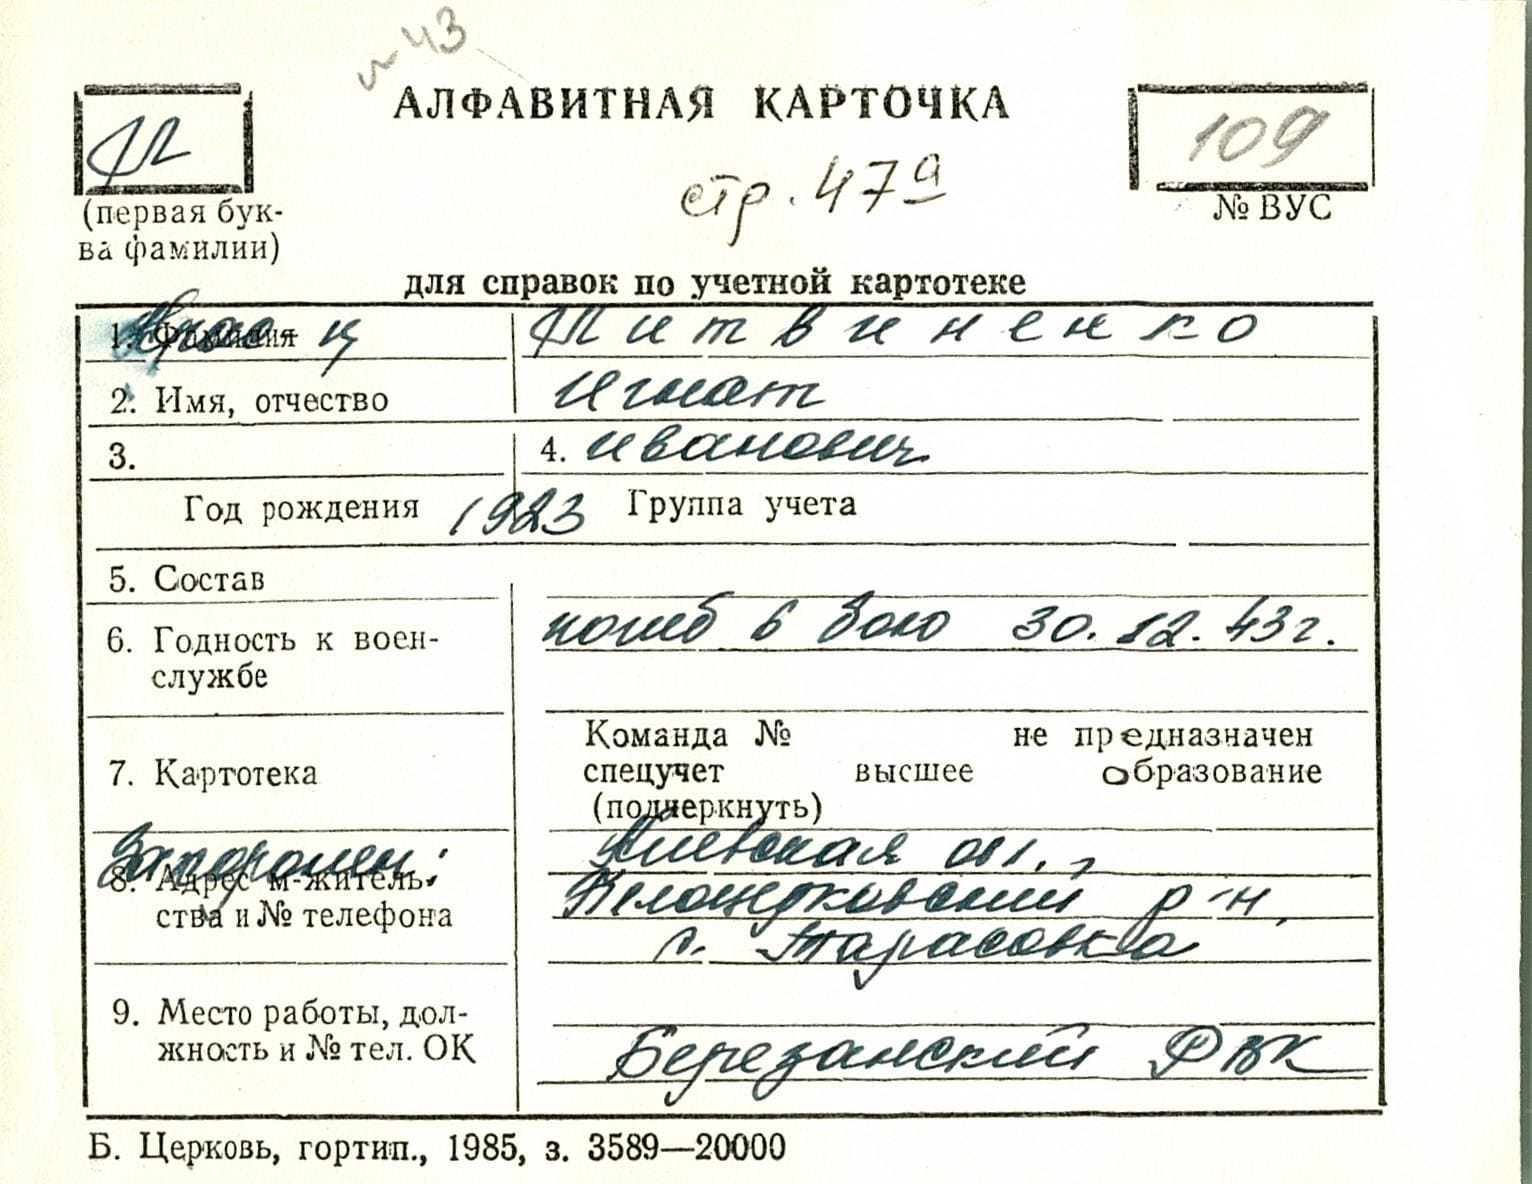 43
АЛФАВИТНАЯ КАРТОЧКА
Л
109
стр. 47а
(первая бук-
ва фамилии)
№ ВУС
для справок по учетной картотеке
1. Фамилия Литвиненко
2. Имя, отчество Игнат
3. 4. Иванович
Год рождения 1923 Группа учета
5. Состав
6. Годность к воен- погиб в бою 30.12.43г.
службе
Команда № не предназначен
7. Картотека спецучет высшее образование
(подчеркнуть)
Захоронен: Киевская обл.,
8. Адрес м-житель- Белоцерковский р-н,
ства и № телефона
с. Тарасовка
9. Место работы, дол-
жность и № тел. ОК Березанский РВК
Б. Церковь, гортип., 1985, з. 3589—20000